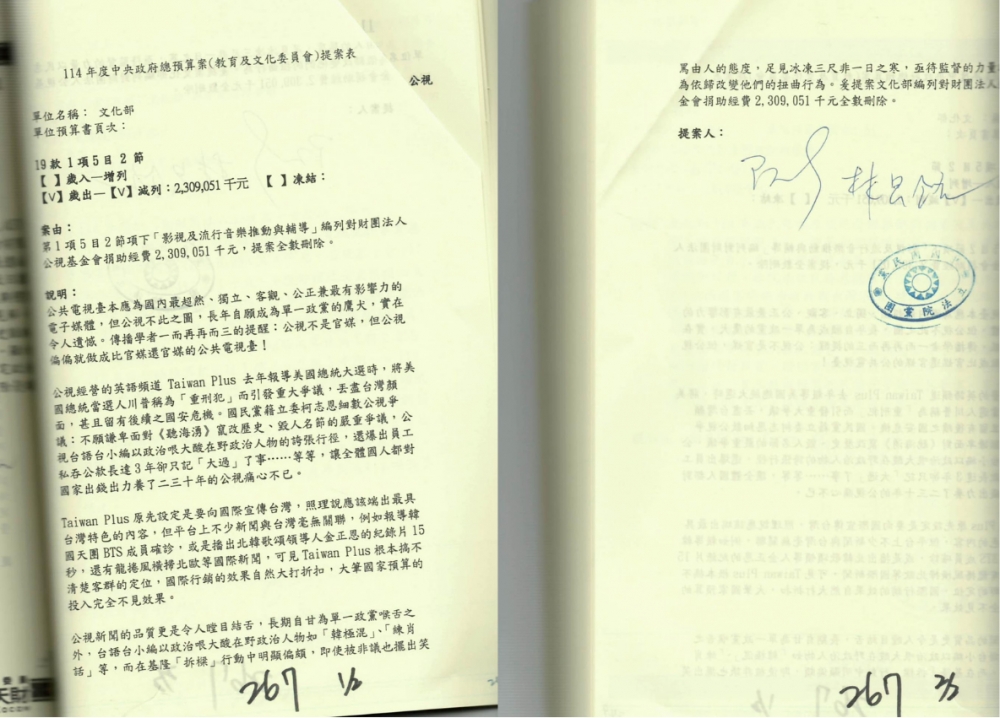 114年度中央政府總預算案(教育及文化委員會)提案表
公視
單位名稱： 文化部
單位預算書頁次：
19款1項5目2節
【 】歲入—增列
【V】歲出—【V】減列：2,309,051千元 【 】凍結：
案由：
第1項5目2節項下「影視及流行音樂推動與輔導」編列對財團法人
公視基金會捐助經費2,309,051千元，提案全數刪除。
說明：
公共電視臺本應為國內最超然、獨立、客觀、公正兼最有影響力的
電子媒體，但公視不此之圖，長年自願成為單一政黨的鷹犬，實在
令人遺憾。傳播學者一而再再而三的提醒：公視不是官媒，但公視
偏偏就做成比官媒還官媒的公共電視臺！
公視經營的英語頻道 Taiwan Plus 去年報導美國總統大選時，將美
國總統當選人川普稱為「重刑犯」而引發重大爭議，丟盡台灣顏
面，甚且留有後續之國安危機。國民黨籍立委柯志恩細數公視爭
議：不願謙卑面對《聽海湧》竄改歷史、毀人名節的嚴重爭議，公
視台語台小編以政治哏大酸在野政治人物的誇張行徑，還爆出員工
私吞公款長達3年卻只記「大過」了事……等等，讓全體國人都對
國家出錢出力養了二三十年的公視痛心不已。
Taiwan Plus 原先設定是要向國際宣傳台灣，照理說應該端出最具
台灣特色的內容，但平台上不少新聞與台灣毫無關聯，例如報導韓
國天團BTS成員確診，或是播出北韓歌頌領導人金正恩的紀錄片15
秒，還有龍捲風橫掃北歐等國際新聞，可見Taiwan Plus根本搞不
清楚客群的定位，國際行銷的效果自然大打折扣，大筆國家預算的
投入完全不見效果。
公視新聞的品質更是令人瞠目結舌，長期自甘為單一政黨喉舌之
外，台語台小編以政治哏大酸在野政治人物如「韓極混」、「練肖
話」等，而在基隆「拆樑」行動中明顯偏頗，即使被非議也擺出笑
267 1/2
罵由人的態度，足見冰凍三尺非一日之寒，亟待監督的力量
為依歸改變他們的扭曲行為。爰提案文化部編列對財團法人
金會捐助經費2,309,051千元全數刪除。
提案人：
中國國民黨
立法院黨團
267 2/2